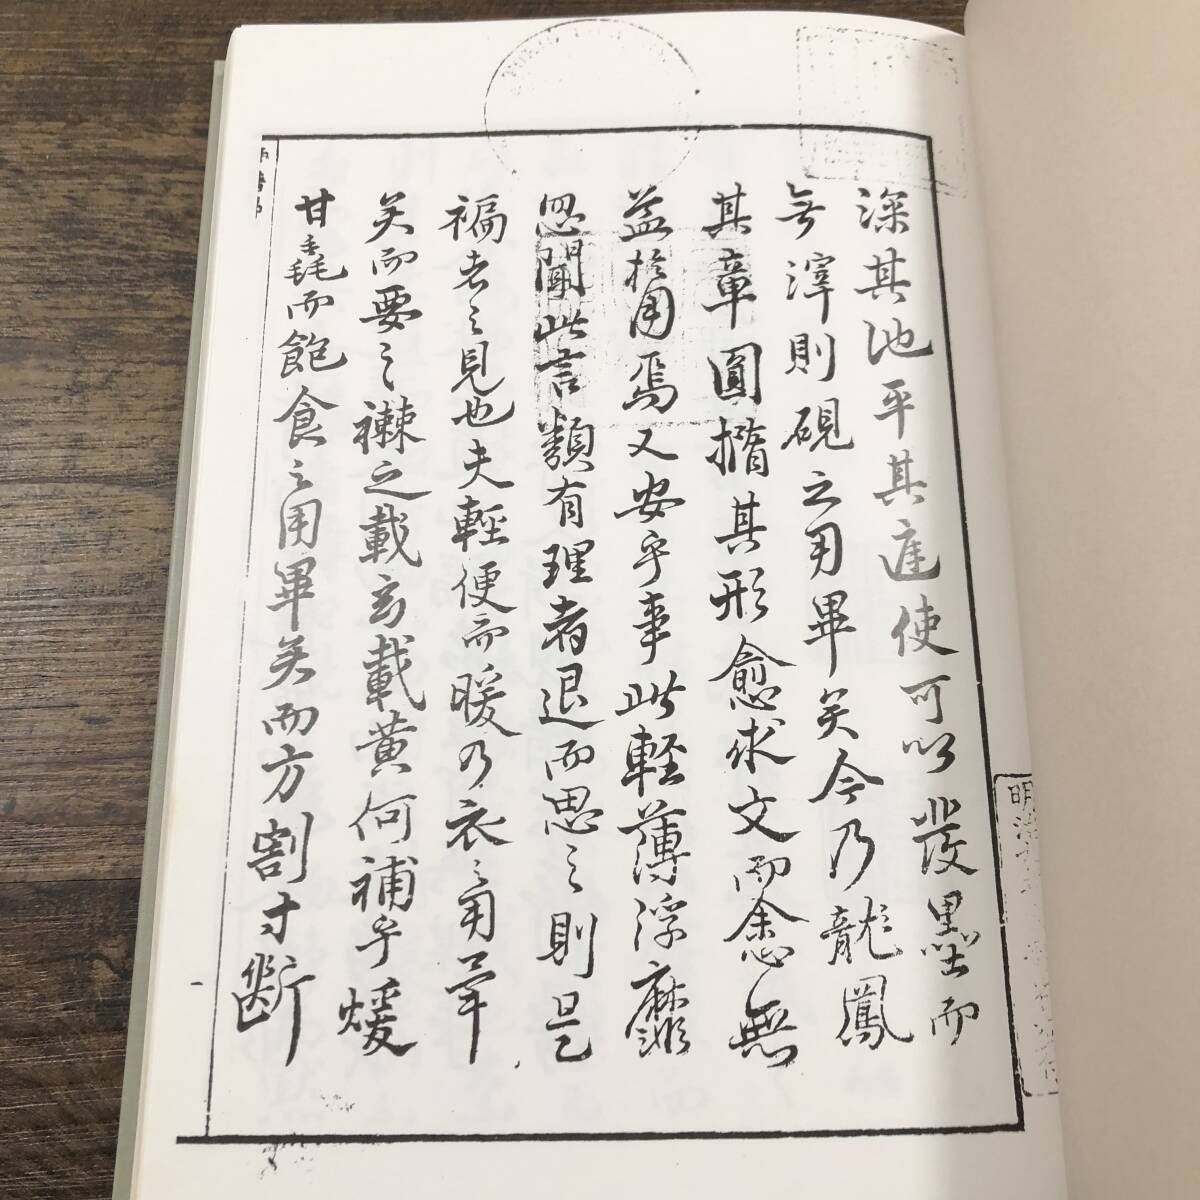 深其池平其庭使可以發墨而
無滓則硯之用畢矣今乃龍鳳
其章圓橢其形愈求文而愈無
益於用焉又安乎事此輕薄浮靡
忽聞此言類有理者退而思之則是
褊者之見也夫輕便而暖乃衣之用畢
矣而要之襋之載玄載黃何補乎煖
甘毳而飽食之用畢矣而方割寸斷